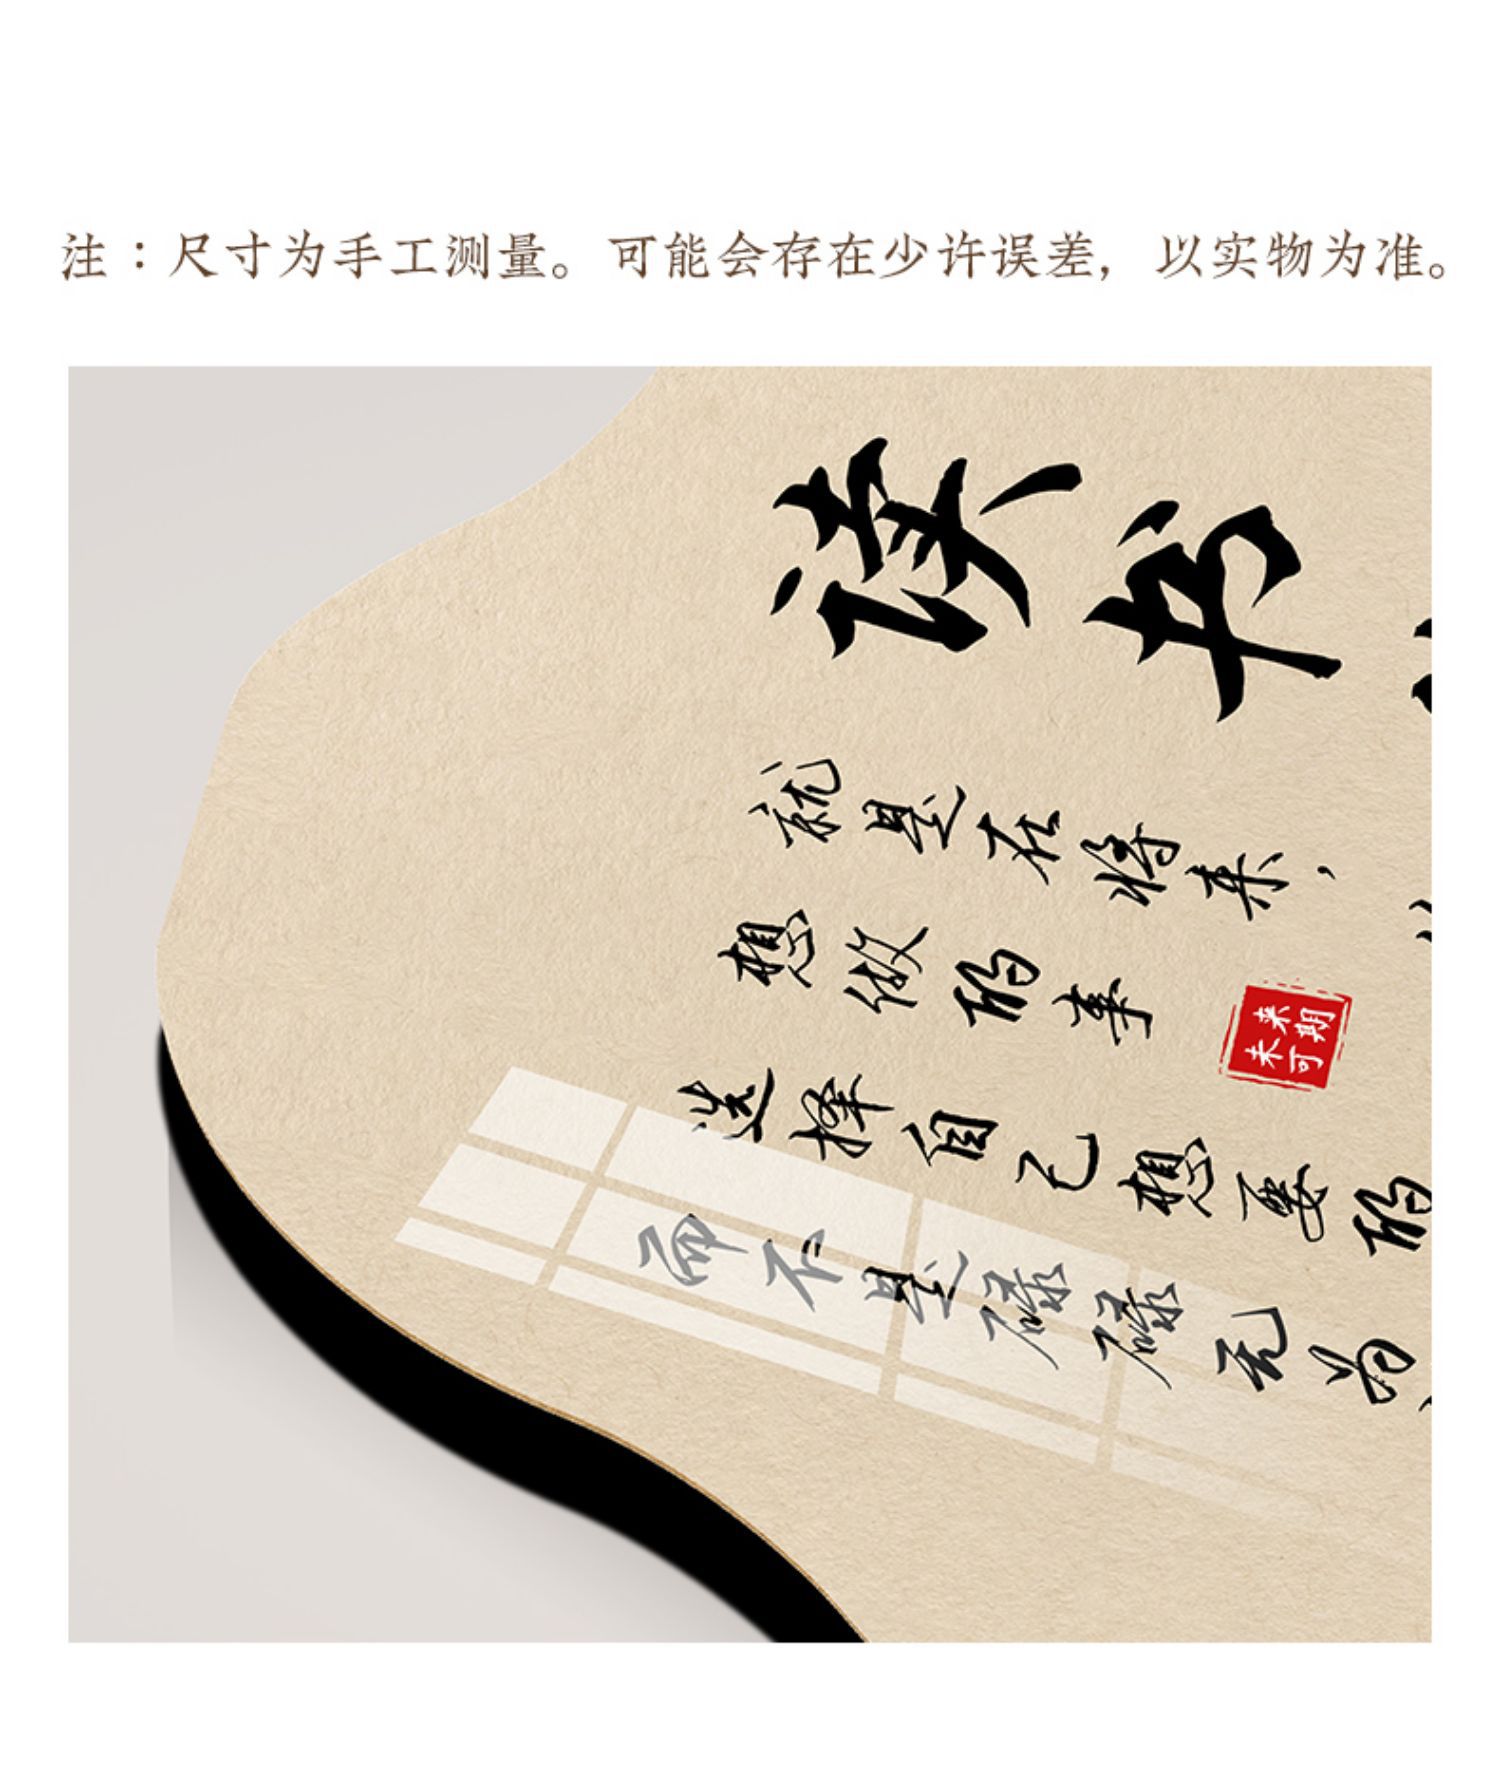 注：尺寸为手工测量。可能会存在少许误差，以实物为准。
读书
就是在将来，
想做的事
选择自己想要的
而不是碌碌无为
未来可期